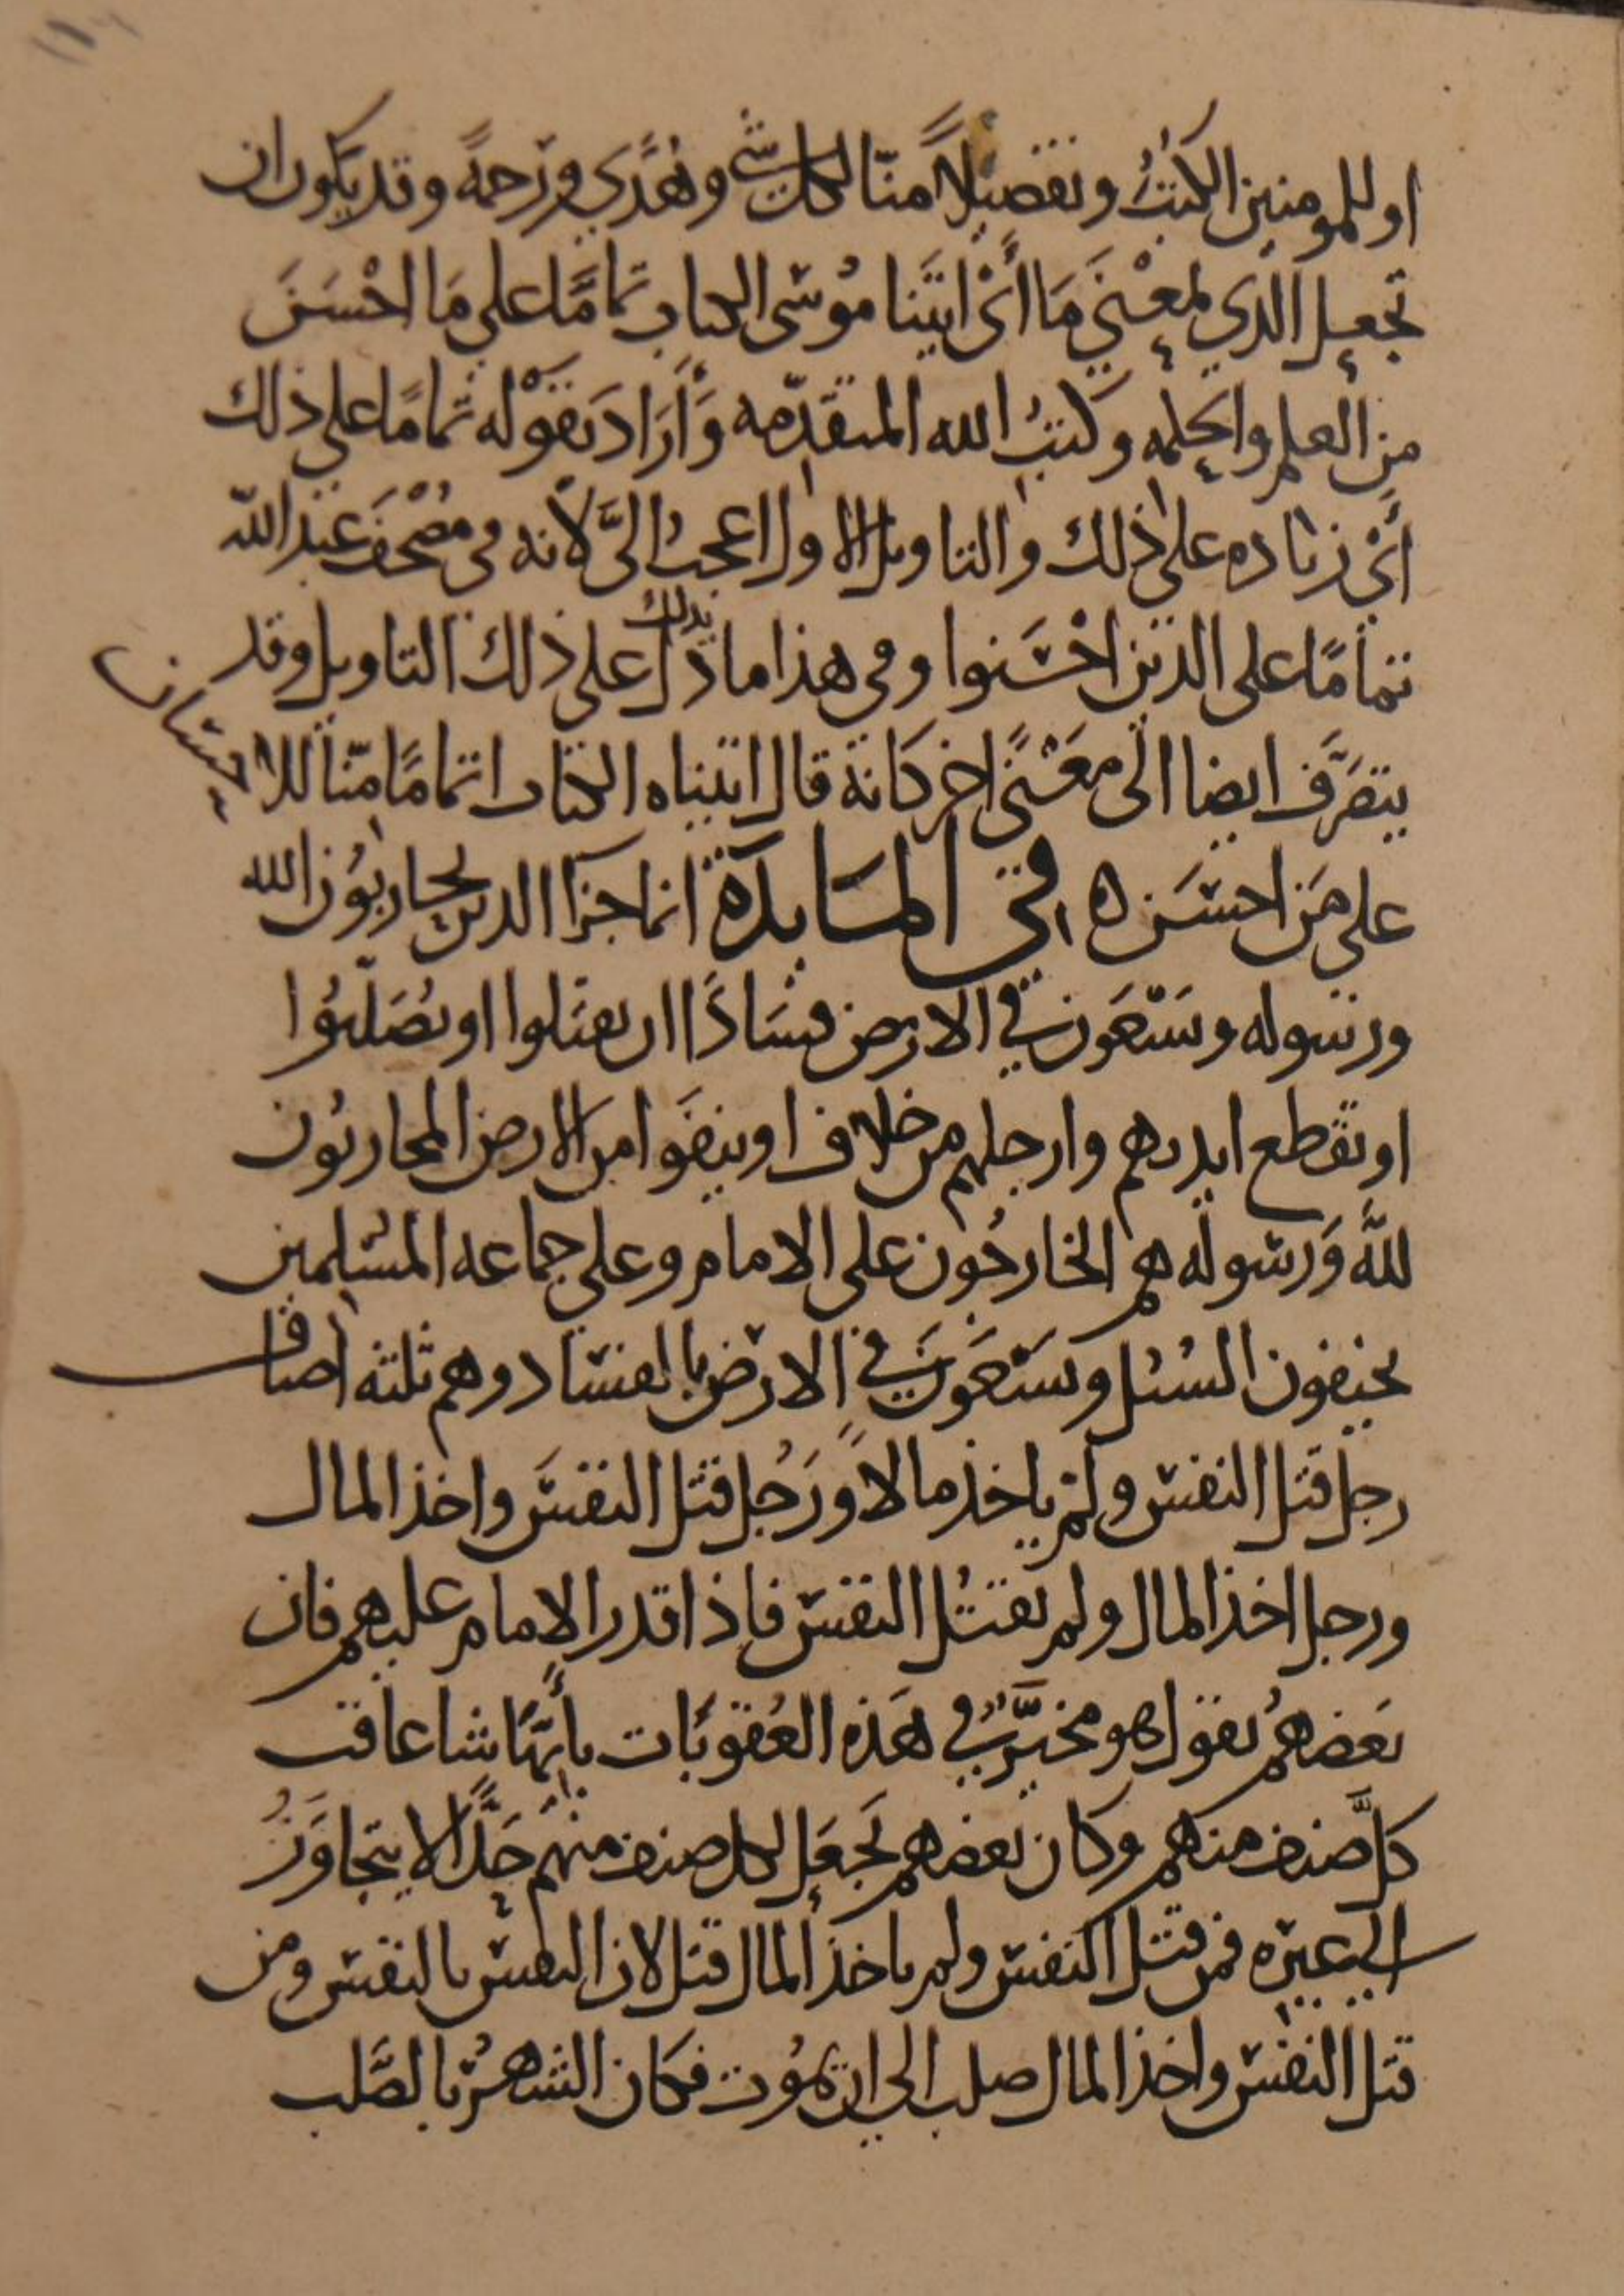 او للمومنين الكتب وتفصيلاً منّا لكل شي وهُدًي ورَحمةً وقد يكون ان
تجعل الذي بمعْني مَا أَيْ اتيَنا مُوسَى الكتاب تمامًا على مَا احْسَنَ
من العلم والحكمه وكتبُ الله المتقدّمه وَأرَادَ بقوْله تمامًا على ذلك
أيْ زياده على ذلك والتاويل الاول اعجبُ اليَّ لأنه في مصْحَف عبد الله
تمامًا على الذين احْسَنوا وفي هذا ما دَل بذلك على ذلك التاويل وقد
يتصَرَّف ايضا الى معْنًى اخر كانه قال اتيناه الكتاب اتمامًا منّا للاحسان
على مَن احسَن ه في المَايدَة انما جزآ الذين يحاربُون الله
ورسوله ويَسْعَون في الارض فسَادًا ان يقتلوا او يُصَلّبُوا
او تقطع ايديهم وارجلهم من خلاف او ينفَوا من الارض المحاربُون
للهِ وَرسوله هم الخارجُون على الامام وعلى جماعه المسلمين
يخيفون السُبُل ويَسْعَون في الارض بالفساد وهم ثلثه اصناف
رجل قتل النفس ولمْ ياخذ مالاً ورَجُل قتل النفسَ واخذ المال
ورجل اخذ المال ولم يقتُل النفس فاذا قدر الامام عليهم فان
بَعضهمُ يقول هو مخيَّرٌ في هَذه العُقوبَات بأَيّهَا شا عاقب
كلَّ صنف منهم وكان بعضهم يَجعَل لكل صنف منهم حَدًّا لا يتجاوَزُ
الى غيره فمن قتل النفس ولم ياخذ المال قتل لان النفس بالنفس ومن
قتل النفس واخذ المال صلب الى ان يمُوت فكان الشهرُ بالصَّلب